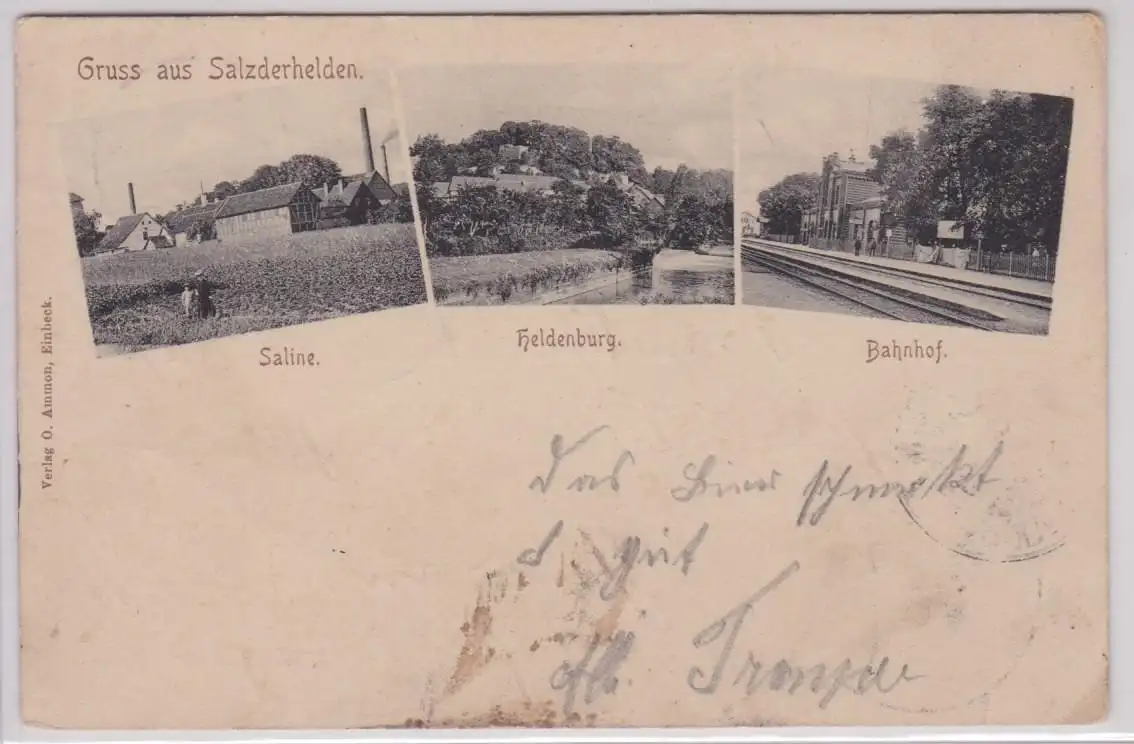 Gruss aus Salzderhelden.
Saline.
Heldenburg.
Bahnhof.
Verlag O. Ammon, Einbeck.
Das Bier schmeckt
gut